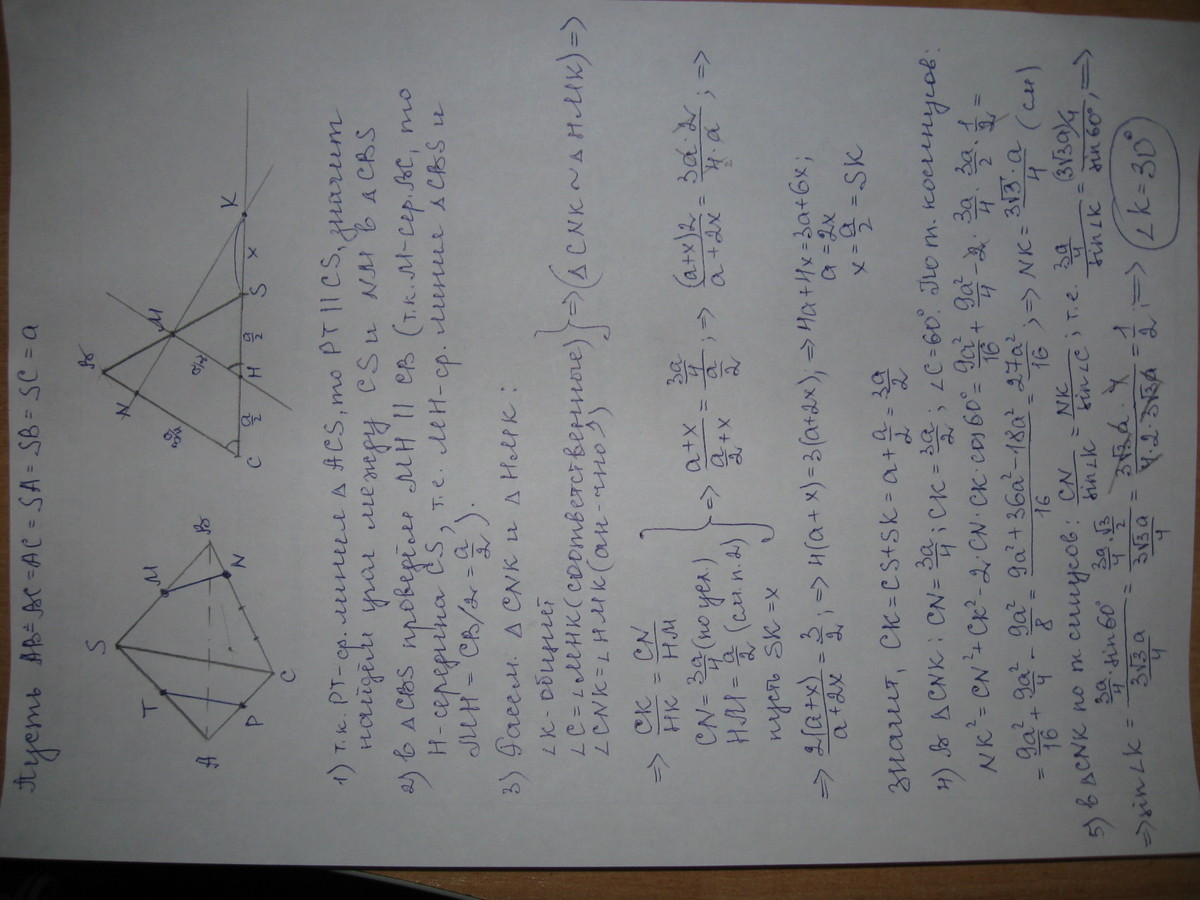 Пусть AB=BC=AC=SA=SB=SC=a
S
T
M
A
B
P
N
C
B
N
M
3a/4
a/2
C
a/2
H
a/2
S
x
K
1) т.к. PT-ср.линия △ ACS, то PT || CS, значит
найдём угол между CS и NM в △ CBS
2) в △ CBS проведём MH || CB (т.к. M-сер.BC, то
H-середина CS, т.е. MH-ср. линия △ CBS и
MH = CB/2 = a/2).
3) Рассм. △ CNK и △ HMK:
∠K-общий
∠C=∠MHK(соответственные)
∠CNK=∠HMK(ан-чно)
} => (△ CNK ~ △ HMK) =>
=> CK/HK = CN/HM
CN = 3a/4 (по усл)
HM = a/2 (см. п. 2)
пусть SK=x
} => (a+x)/(a/2+x) = (3a/4)/(a/2) ; => (a+x)2/(a+2x) = 3a·2/(4·a) ; =>
=> 2(a+x)/(a+2x) = 3/2 ; => 4(a+x)=3(a+2x); => 4a+4x=3a+6x;
a=2x
x = a/2 = SK
значит, CK=CS+SK = a + a/2 = 3a/2
4) В △ CNK: CN = 3a/4; CK = 3a/2; ∠C=60°. По т. косинусов:
NK² = CN²+CK²-2·CN·CK·cos60° = 9a²/16 + 9a²/4 - 2·3a/4·3a/2·1/2 =
= 9a²/16 + 9a²/4 - 9a²/8 = (9a²+36a²-18a²)/16 = 27a²/16 ; => NK = 3√3·a/4 (см)
5) в △CNK по т. синусов: CN/sin∠K = NK/sin∠C ; т.е. (3a/4)/sin∠K = (3√3a)/4/sin60° ; =>
=> sin∠K = (3a/4·sin60°)/(3√3a/4) = (3a/4·√3/2)/(3√3a/4) = 3√3a·4/(4·2·3√3a) = 1/2 ; => ∠K=30°